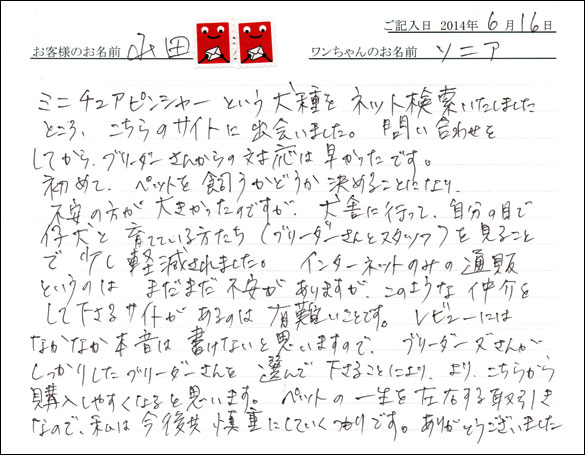 ご記入日 2014年 6月16日
お客様のお名前 永田 ワンちゃんのお名前 ソニア
ミニチュアピンシャーという犬種をネット検索いたしました
ところ、こちらのサイトに出会いました。 問い合わせを
してから、ブリーダーさんからの対応は早かったです。
初めて、ペットを飼うかどうか決めることになり、
不安の方が大きかったのですが、犬舎に行って、自分の目で
仔犬と育てている方たち(ブリーダーさんとスタッフ)を見ること
で少し軽減されました。 インターネットのみの通販
というのは まだまだ不安がありますが、このような仲介を
して下さるサイトがあるのは有難いことです。 レビューには
なかなか本音は書けないと思いますので、 ブリーダーズさんが
しっかりしたブリーダーさんを選んで下さることにより、より、こちらから
購入しやすくなると思います。 ペットの一生を左右する取引き
なので、私は今後共慎重にしていくつもりです。ありがとうございました